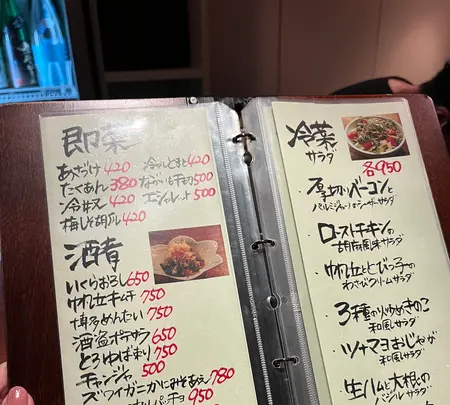 即菜
あさづけ 420 冷やしとまと 420
たくあん 380 ながいも千切 500
冷奴 420 エシャレット 500
梅しそ胡瓜 420
酒肴
いくらおろし 650
帆立キムチ 750
博多めんたい 750
酒盗ポテサラ 650
とろゆばまり 750
チャンジャ 500
ズワイガニかにみそあえ 780
カルパッチョ 950
冷菜
サラダ
各950
・厚切ベーコンと
パルミジャーノのシーザーサラダ
・ローストチキンの
胡麻風味サラダ
・帆立ととびっ子の
わさびクリームサラダ
・3種の炒めきのこ
和風サラダ
・ツナマヨおじゃが
和風サラダ
・生ハムと大根の
バジルサラダ